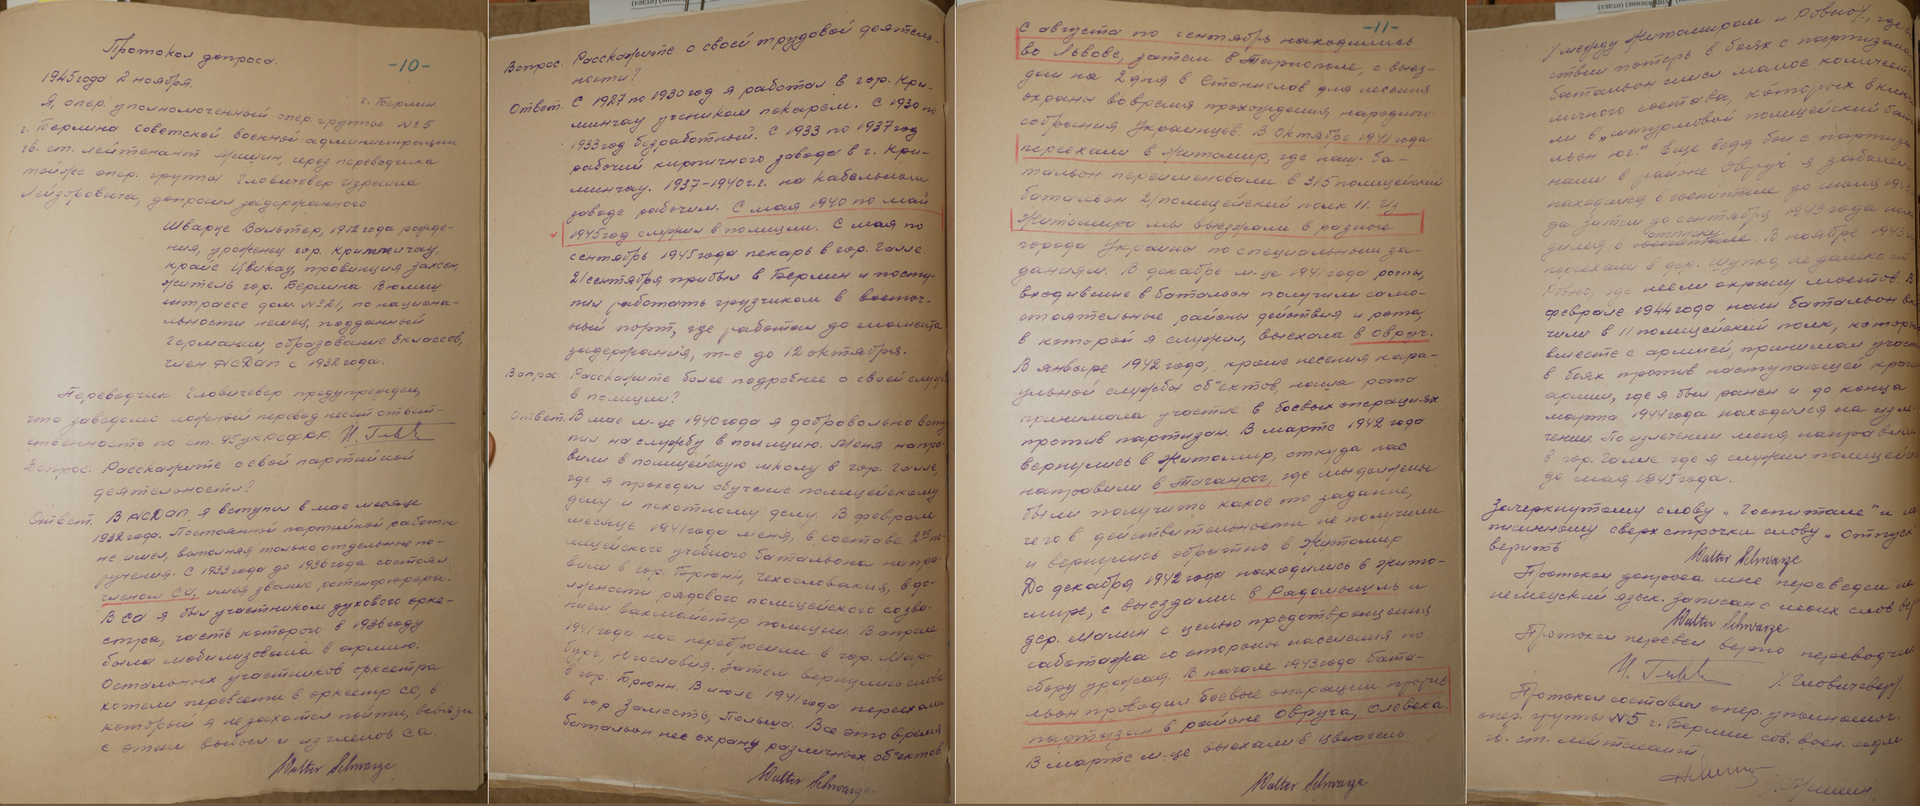 Протокол допроса.
-10-
1945 года 2 ноября.
г. Берлин.
Я, опер. уполномоченный опер. группы №5
г. Берлина Советской военной администрации
гв. ст. лейтенант Мишин, через переводчика
той же опер. группы Гловичевер Израила
Лейзеровича, допросил задержанного
Шварце Вальтер, 1912 года рожде-
ния, уроженец гор. Криммичау,
крайс Цвикау, провинция Заксен,
житель гор. Берлина
штрассе дом. №21, по национа-
льности немец, подданный
Германии, образование 8 классов,
член НСДАП с 1932 года.
Переводчик Гловичевер предупрежден,
что за заведомо ложный перевод несет ответ-
ственность по ст. 95 УК РСФСР.
Вопрос. Расскажите о свой партийной
деятельности?
Ответ. В НСДАП я вступил в мае месяце
1932 года. Постоянной партийной работы
не имел, выполнял только отдельные по-
ручения. С 1933 года до 1936 года состоял
членом СА, имел звание ротенфюрера.
В СА я был участником духового орке-
стра, часть которого в 1936 году
была мобилизована в армию.
Остальных участников оркестра
хотели перевести в оркестр СС, в
который я не захотел пойти, в связи
с этим выбыл и из членов СА.
Walter Schwarze
Вопрос. Расскажите о своей трудовой деятель-
ности?
Ответ. С 1927 по 1930 год я работал в гор. Кри-
мичау учеником пекарем. С 1930 по
1933 год безработный. С 1933 по 1937 год
рабочий кирпичного завода в г. Кри-
минчау. 1937-1940 г.г. на кабельном
заводе рабочим. С мая 1940 по май
1945 год служил в полиции. С мая по
сентябрь 1945 года пекарь в гор. Галле.
21 сентября прибыл в Берлин и посту-
пил работать грузчиком в восточ-
ный порт, где работал до момента
задержания, т-е до 12 октября.
Вопрос. Расскажите более подробнее о своей службе
в полиции?
Ответ. В мае м-це 1940 года я добровольно всту-
пил на службу в полицию. Меня напра-
вили в полицейскую школу в гор. Галле,
где я проходил обучение полицейскому
делу и пехотному делу. В феврале
месяце 1941 года меня, в составе 2го по-
лицейского учебного батальона напра-
вили в гор. Брюнн, Чехословакия, в до-
лжности рядового полицейского со зва-
нием вахмайстер полиции. В апреле
1941 года нас перебросили в гор. Мар-
бург, Югославия. Затем вернулись снова
в гор. Брюнн. В июле 1941 года переехали
в гор Замость, Польша. Все это время
батальон нес охрану различных объектов.
Walter Schwarze
-11-
С августа по сентябрь находились
во Львове, затем в Тарнополе, с выез-
дом на 2 дня в Станислав для несения
охраны во время прохождения народного
собрания Украинцев. В Октябре 1941 года
переехали в Житомир, где наш ба-
тальон переименовали в 315 полицейский
батальон 2/полицейский полк 11. Из
Житомира мы выезжали в разные
города Украины по специальным за-
даниям. В декабре м-це 1941 года роты,
входившие в батальон получили само-
стоятельные районы действия и рота,
в которой я служил, выехала в Овруч.
В январе 1942 года, кроме несения кара-
ульной службы объектов, наша рота
принимала участие в боевых операциях
против партизан. В марте 1942 года
вернулись в Житомир, откуда нас
направили в Таганрог, где мы должны
были получить какое то задание,
чего в действительности не получили
и вернулись обратно в Житомир
До декабря 1942 года находились в Жито-
мире, с выездами в Радомышль и
дер. Малин с целью предотвращения
саботажа со стороны населения по
сбору урожая. В начале 1943 года бата-
льон проводил боевые операции против
партизан в районе Овруча, Олевска.
В марте м-це выехали в Цвиагель
Walter Schwarze
/между Житомиром и Ровно/, где
ствии потерь в боях с партизана
батальон имел малое количест
личного состава, которых включ
ли в "штурмовой полицейский бат
льон юг." Еще ведя бои с партиза
нами в районе Овруч я заболел
находился в госпитале до июля 1943
да затем до сентября 1943 года нах
дился в госпитале. отпуску. В ноябре 1943
переехали в дер. недалеко от
Ровно, где несли охрану мостов. В
феврале 1944 года наш батальон вк
чили в 11 полицейский полк, которы
вместе с армией, принимал участ
в боях против наступающей красн
армии, где я был ранен и до конца
марта 1944 года находился на изле
чении. По излечении меня направили
в гор. Галле где я служил полицейск
до мая 1945 года.
Зачеркнутому слову "Госпитале" и на
писанному сверх строчки слову "Отпуск
верить
Walter Schwarze
Протокол допроса мне переведен на
немецкий язык. Записан с моих слов вер
Walter Schwarze
Протокол перевел верно переводчик
/Гловичевер/.
Протокол составил опер. уполномоч.
опер. группы №5 г. Берлин сов. воен. адм.
гв. ст. лейтенант
/Мишин/